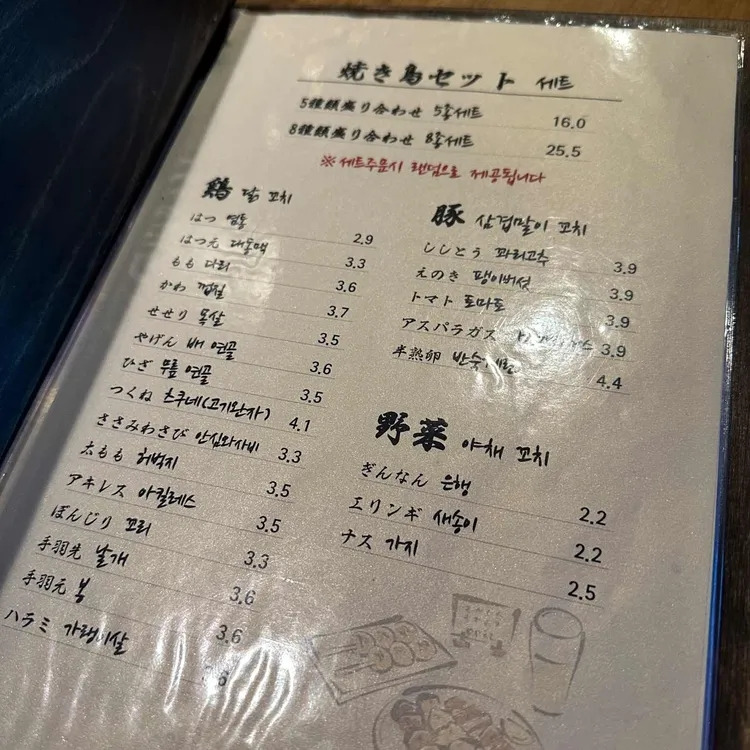 焼き鳥セット 세트
5種類盛り合わせ 5종세트 16.0
8種類盛り合わせ 8종세트 25.5
※세트주문시 랜덤으로 제공됩니다
鶏 닭 꼬치
はつ 염통 2.9
はつ元 대동맥 3.3
もも 다리 3.6
かわ 껍질 3.7
せせり 목살 3.5
やげん 배 연골 3.6
ひざ 무릎 연골 3.5
つくね 츠쿠네(고기완자) 4.1
ささみわさび 안심와사비 3.3
太もも 허벅지 3.5
アキレス 아킬레스 3.5
ぼんじり 꼬리 3.3
手羽先 날개 3.6
手羽元 봉 3.6
ハラミ 가랭이살
豚 삼겹말이 꼬치
ししとう 꽈리고추 3.9
えのき 팽이버섯 3.9
トマト 토마토 3.9
アスパラガス 3.9
半熟卵 4.4
野菜 야채 꼬치
ぎんなん 은행 2.2
エリンギ 새송이 2.2
ナス 가지 2.5